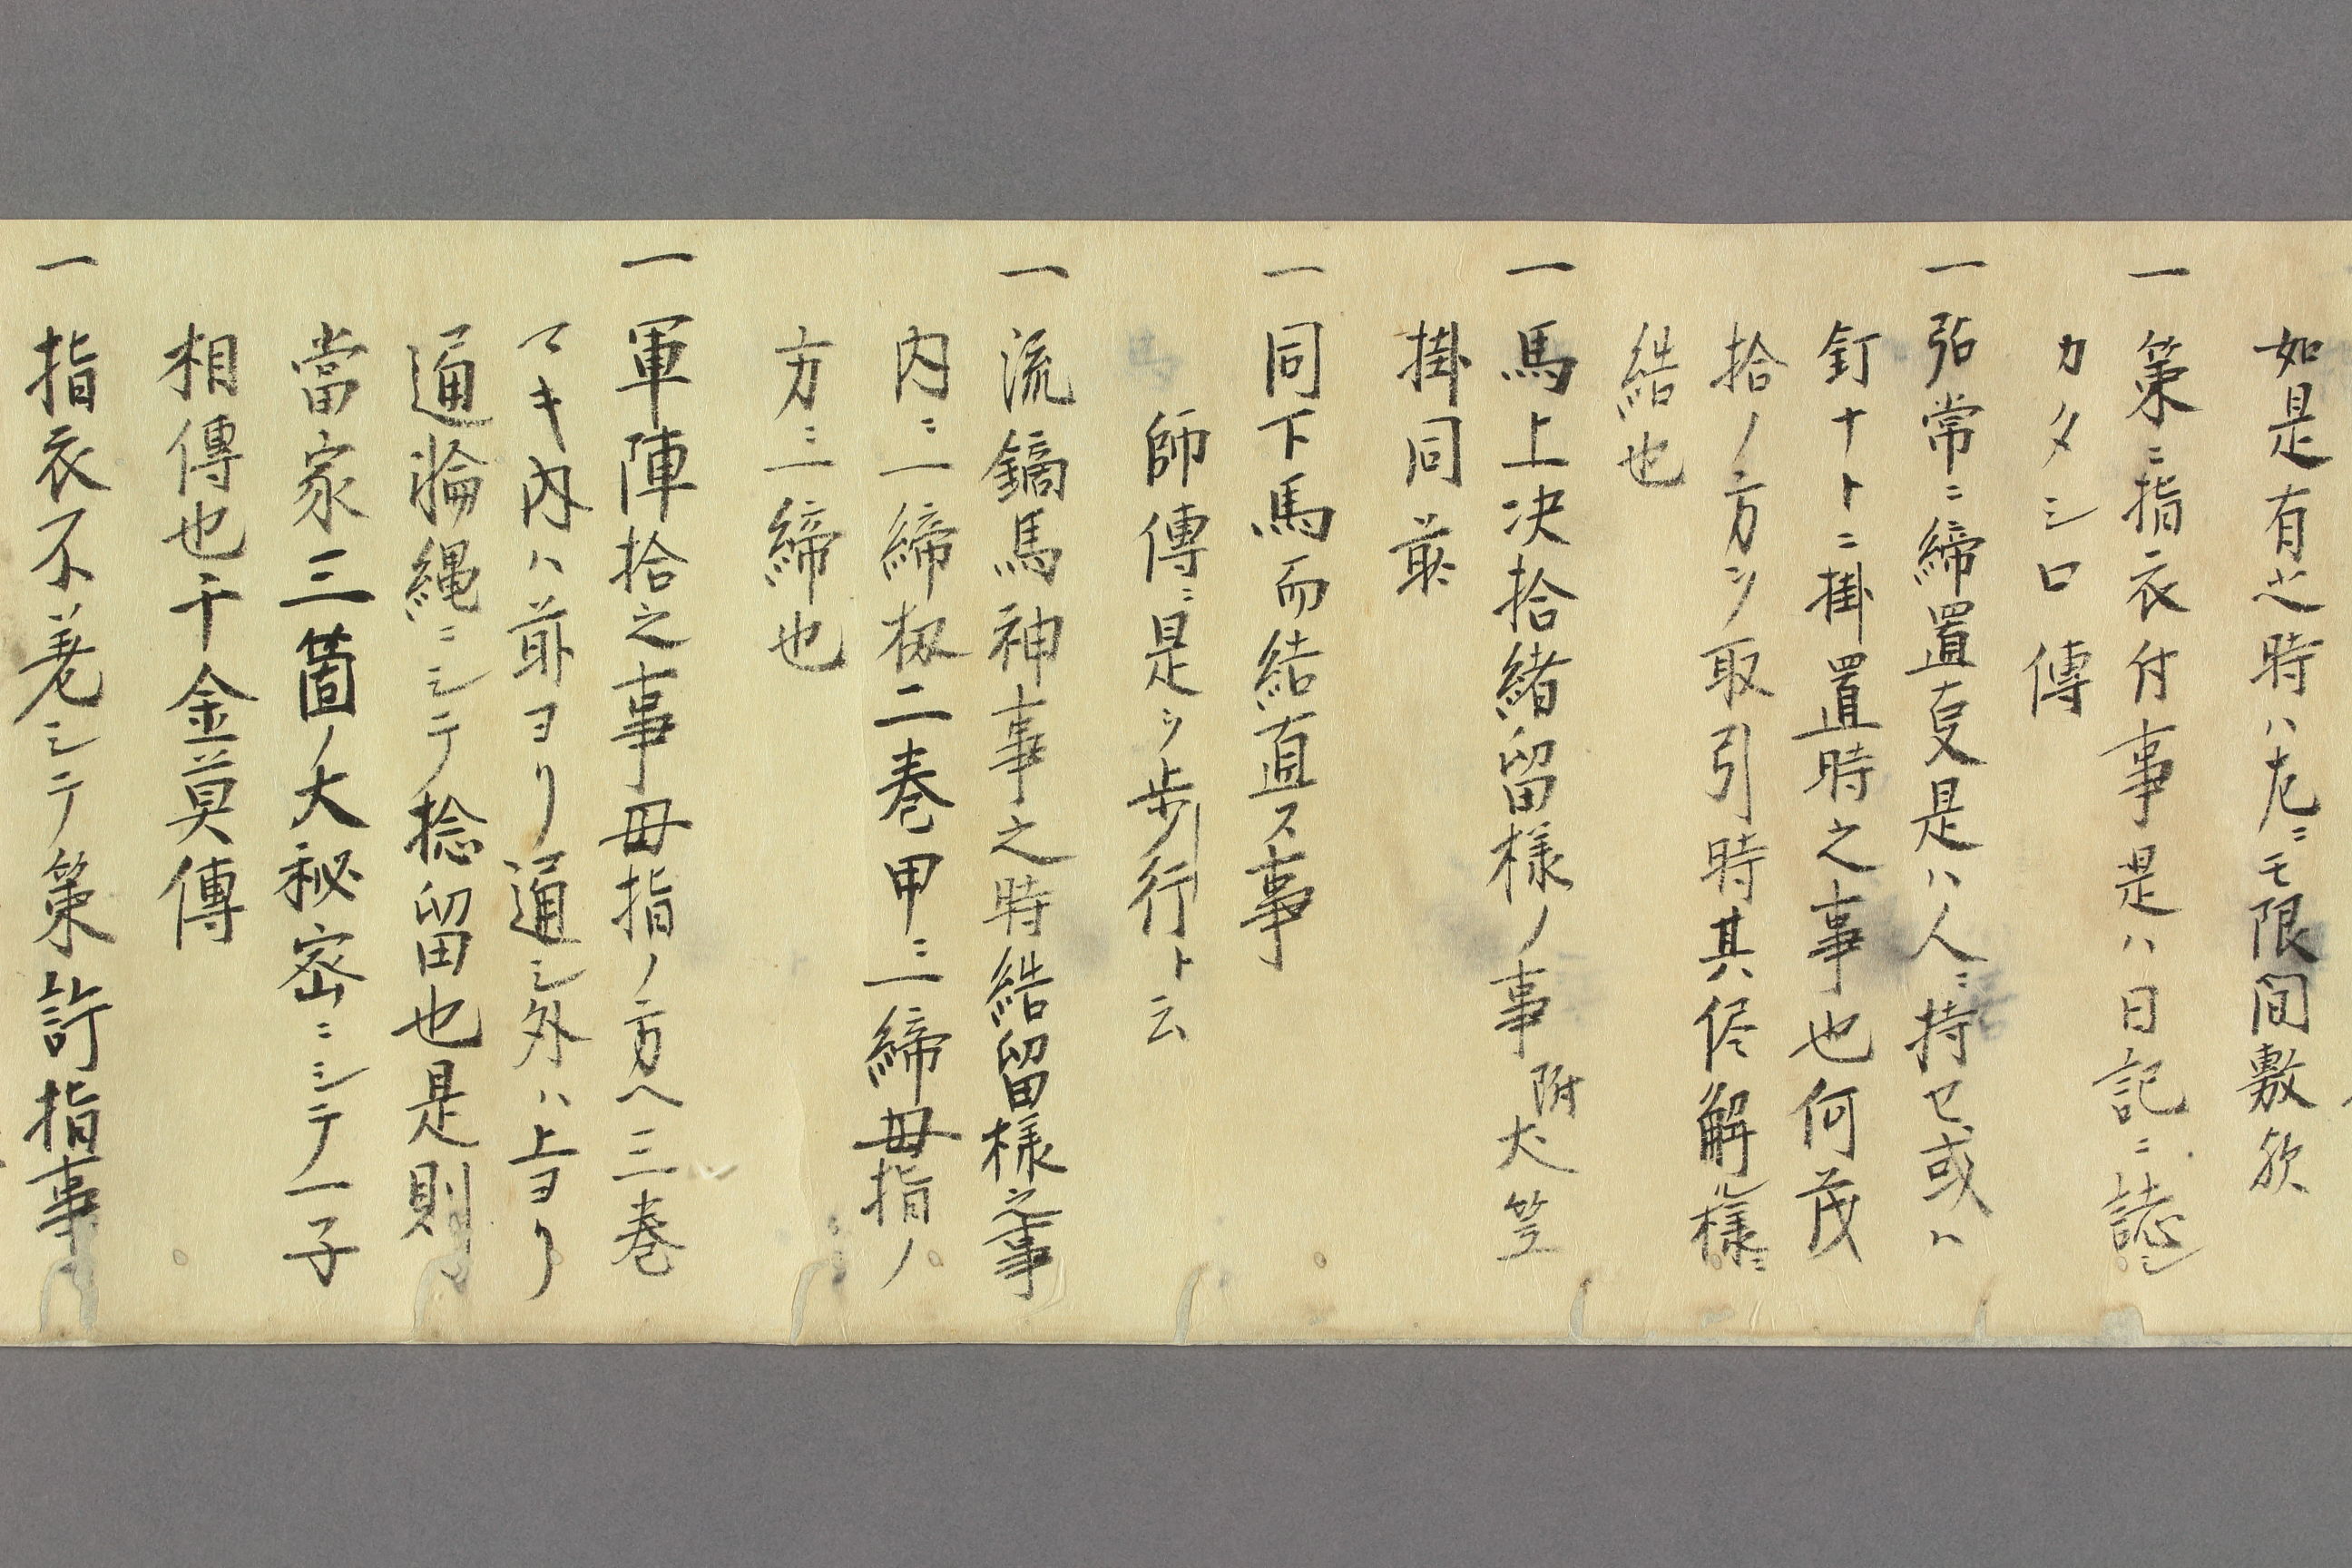 如是有之時ハ尤ニモ限間敷欤
一 策ニ指衣付事是ハ日記ニ誌シ
カタシ口傳
一 弽常ニ締置支是ハ人ニ持セ或ハ
釘ナトニ掛置時之事也何茂
拾ノ方ヲ取引時其侭解ル様ニ
結也
一 馬上决拾緒留様ノ事 附犬笠
掛同前
一 同下馬而結直ス事
師傳ニ是ヲ歩行ト云
一 流鏑馬神事之時結留様之事
内ニ一締扱二巻甲ニ一締母指ノ
方ニ一締也
一 軍陣拾之事母指ノ方ヘ三巻
マキ内ハ前ヨリ通シ外ハ上ヨリ
通輪縄ニシテ捻留也是則
當家三箇ノ大秘密ニシテ一子
相傳也千金莫傳
一 指衣不差シテ策許指事